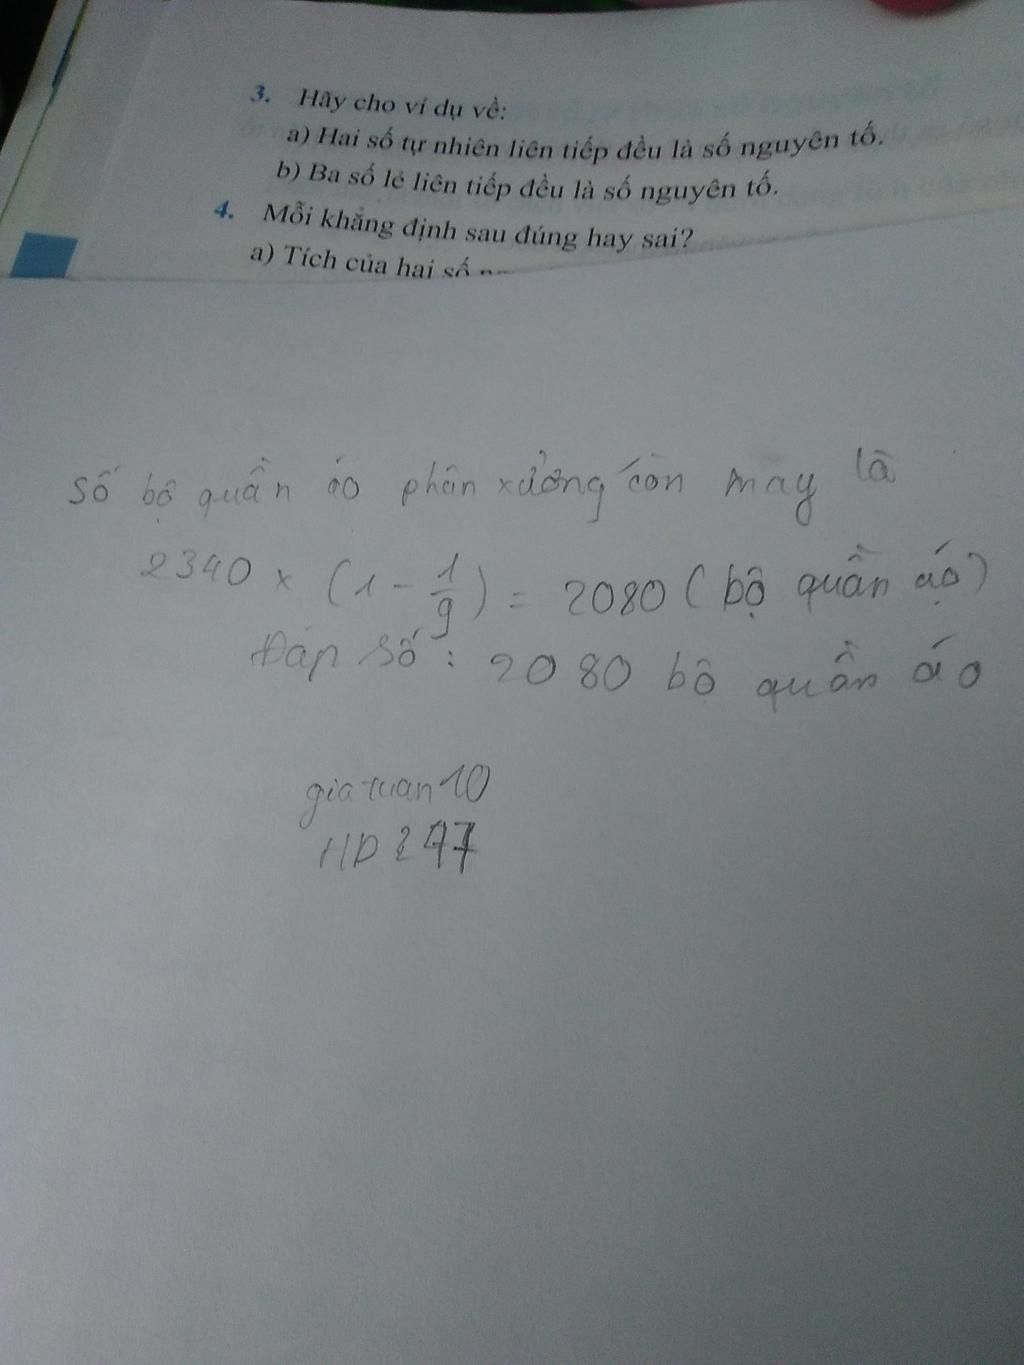 3. Hãy cho ví dụ về:
a) Hai số tự nhiên liên tiếp đều là số nguyên tố.
b) Ba số lẻ liên tiếp đều là số nguyên tố.
4. Mỗi khẳng định sau đúng hay sai?
a) Tích của hai số
Số bộ quần áo phân xưởng còn may là
2340 x (1 - 1/9) = 2080 (bộ quần áo)
Đáp số: 2080 bộ quần áo
giatuan10
HD 247